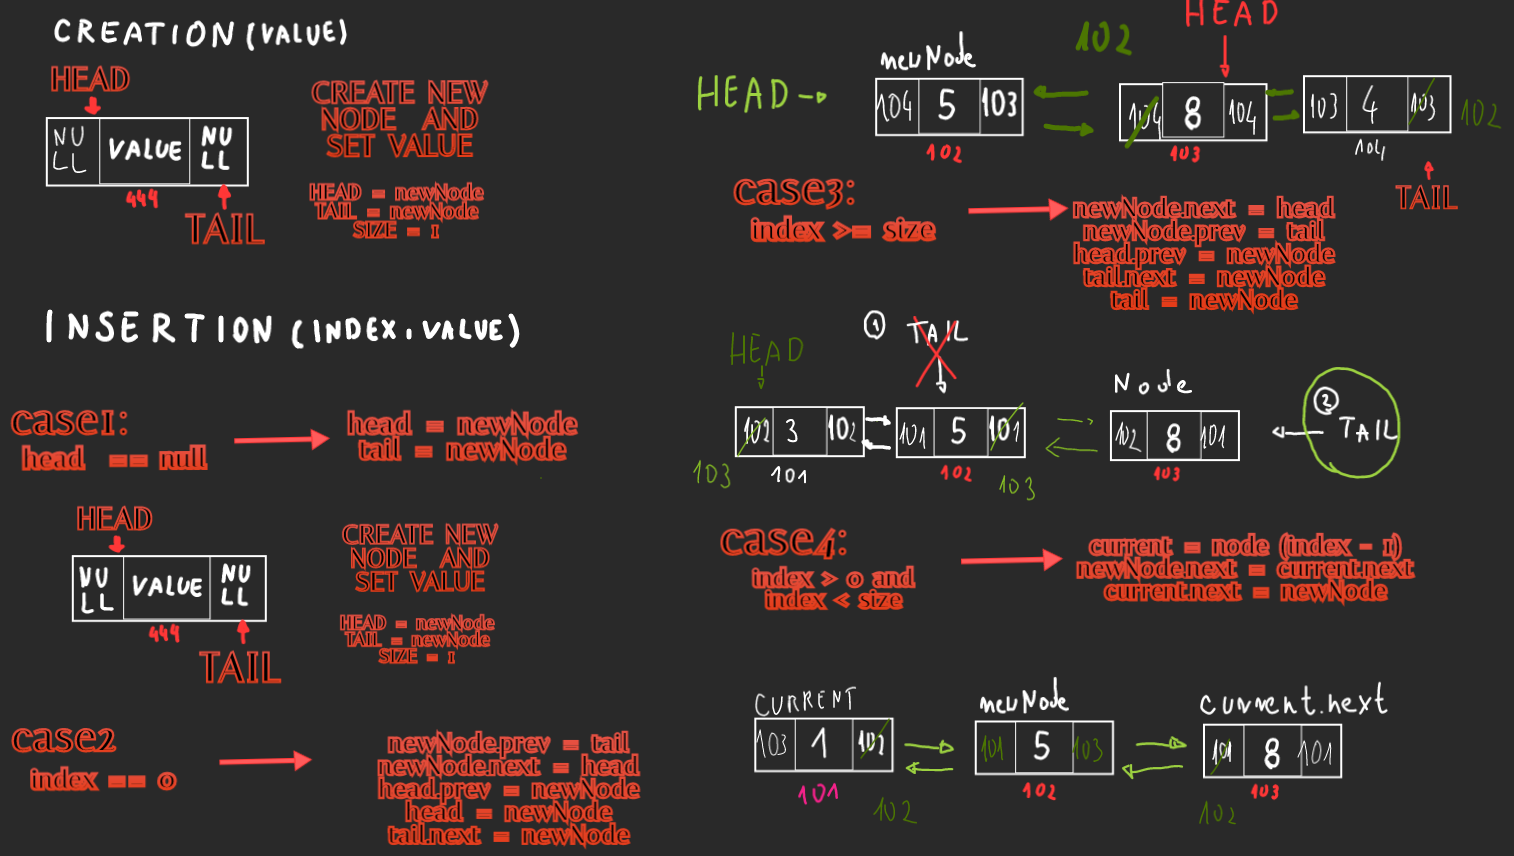 CREATION (VALUE)
HEAD
NU
LL
VALUE
NU
LL
444
TAIL
CREATE NEW
NODE AND
SET VALUE
HEAD = newNode
TAIL = newNode
SIZE = 1
INSERTION (INDEX, VALUE)
case1:
head == null
head = newNode
tail = newNode
HEAD
NU
LL
VALUE
NU
LL
444
TAIL
CREATE NEW
NODE AND
SET VALUE
HEAD = newNode
TAIL = newNode
SIZE = 1
case2
index == 0
newNode.prev = tail
newNode.next = head
head.prev = newNode
head = newNode
tail.next = newNode
HEAD
newNode
104 5 103
102
102
HEAD
104 8 104
103
103 4 103
104
102
TAIL
case3:
index >= size
newNode.next = head
newNode.prev = tail
head.prev = newNode
tail.next = newNode
tail = newNode
HEAD
1 TAIL
102 3 102
103
101
101 5 101
102
103
Node
102 8 101
103
2
TAIL
case4:
index > 0 and
index < size
current = node (index - 1)
newNode.next = current.next
current.next = newNode
CURRENT
103 1 102
101
102
newNode
101 5 103
102
current.next
101 8 101
102
103